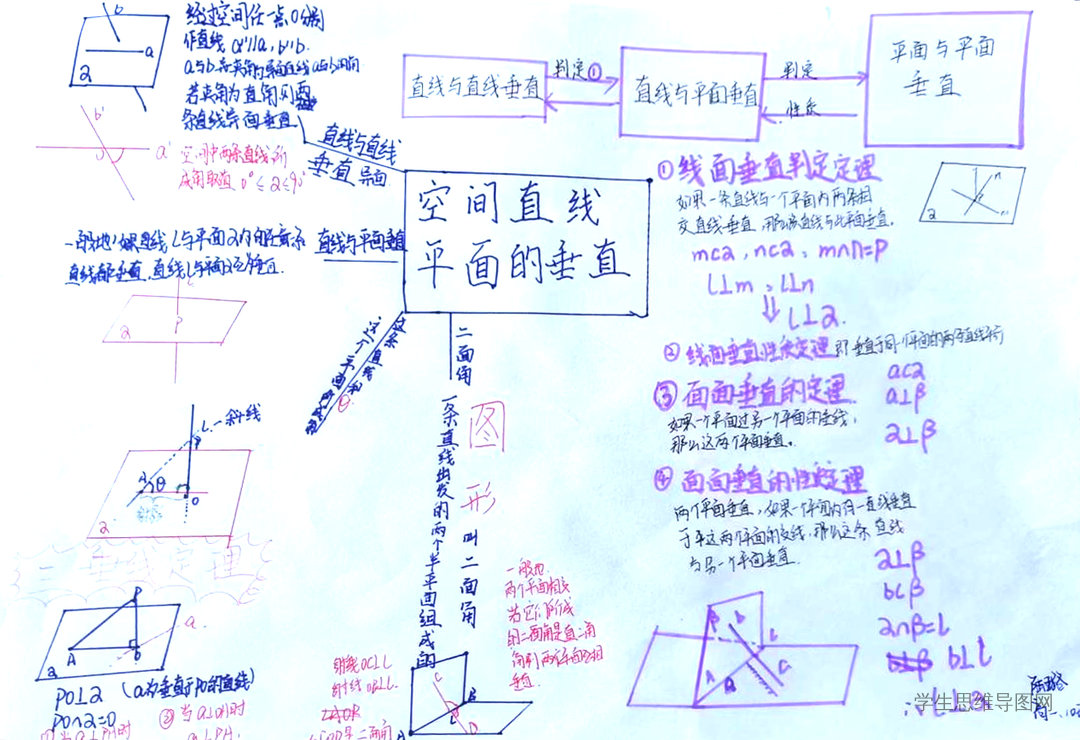 经过空间任一点O分别
作直线 a'∥a, b'∥b.
a
b
2
b'
a'
O
空间中两条直线所
成角取值 0°≤2≤90°
条直线异面垂直
直线与直线
垂直 异面
直线与直线垂直
判定①
直线与平面垂直
判定
性质
平面与平面
垂直
空间直线
平面的垂直
直线与平面垂直
一般地,如果直线l与平面2内的任意一条
直线都垂直,直线l与平面2互为垂直.
l
P
2
这条直线和
这个平面
θ
二面角
一条直线出发的两个半平面组成的
图形
叫二面角
l.一斜线
P
A
θ
O
2
三垂线定理
P
A
O
a
2
PO⊥2 (a为垂直于PO的直线)
PO∩2=O
②当a⊥OA时
a⊥PA.
①线面垂直判定定理
如果一条直线与一个平面内两条相
交直线垂直,那么该直线与此平面垂直.
m⊂2, n⊂2, m∩n=P
l⊥m, l⊥n
⇓ l⊥2.
②线面垂直性质定理 即垂直于同一个平面的两条直线平行
③面面垂直的定理.
如果一个平面过另一个平面的垂线,
那么这两个平面垂直。
a⊂2
a⊥β
2⊥β
④面面垂直的性质定理
两个平面垂直,如果一个平面内有一直线垂直
于平这两个平面的交线,那么这条直线
与另一个平面垂直.
2⊥β
b⊂β
2∩β=l
b⊥l
一般地.
两个平面相交
若它们所成
的二面角是直二角
向则两个平面互相
垂直.
射线OC⊥l
射线OB⊥l.
学生思维导图网